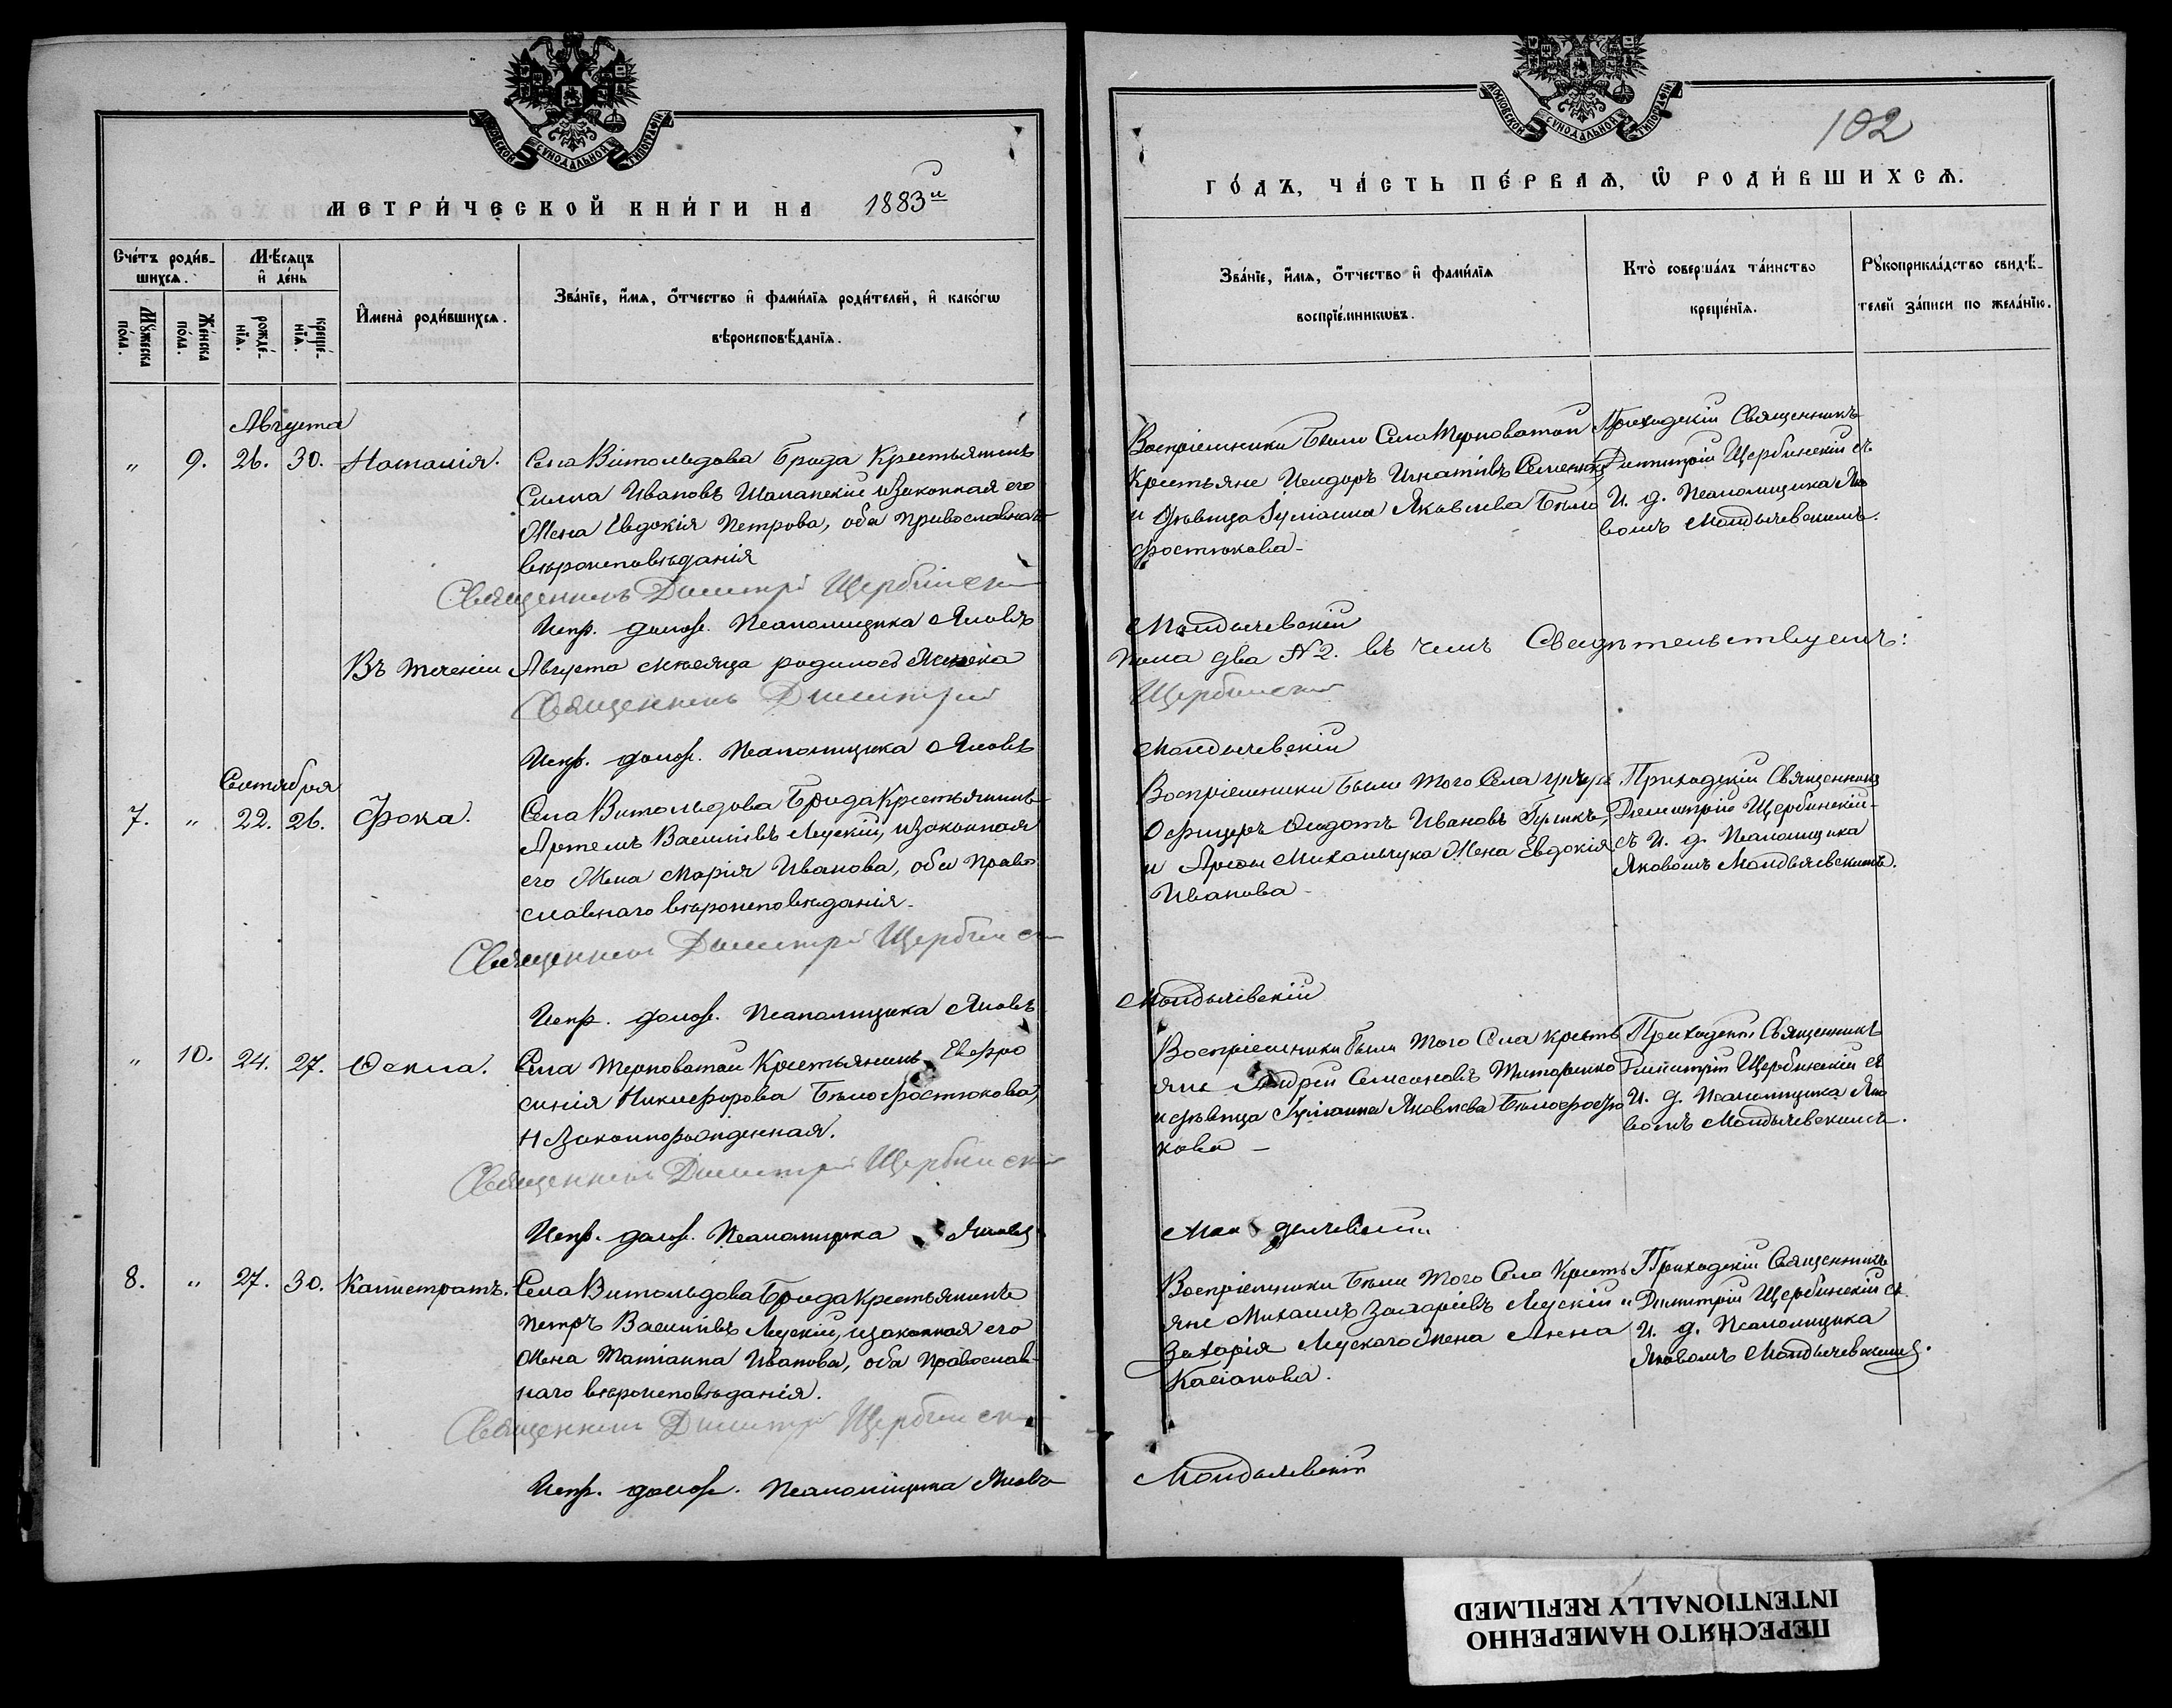 МОСКОВСКОЙ СѴНОДАЛЬНОЙ ТИПОГРАФІИ
МЕТРИ́ЧЕСКОЙ КНИ́ГИ НА 1883й
Сче́тъ роди́в-
шихсѧ.
Мѣ́сѧцъ
и҆ де́нь
Мꙋ́жеска
по́ла.
Же́нска
по́ла.
рожде́-
нїѧ.
креще́-
нїѧ.
И҆мена̀ роди́вшихсѧ.
Зва́нїе, и҆́мѧ, ѻ҆́тчество и҆ фами́лїѧ роди́телей, и҆ како́гѡ
вѣроисповѣ́данїѧ.
Августа
" 9. 26. 30. Наталія.
Села Витольдова Брода Крестьянинъ
Силла Ивановъ и законная его
Жена Евдокія Петрова, оба православнаго
вѣроисповѣданія
Священникъ Димитрій Щербинскій
Испр. долж. Псаломщика Яковъ
Въ теченіи Августа мѣсяца родилось Женска
Священникъ Димитрій
Испр. долж. Псаломщика Яковъ
Сентября
7. " 22. 26. Фока.
Села Витольдова Брода Крестьянинъ
Артемъ Василіевъ Лускій, и законная
его Жена Марія Иванова, оба право
славнаго вѣроисповѣданія.
Священникъ Димитрій Щербинскій
Испр. долж. Псаломщика Яковъ
" 10. 24. 27. Ѳекла.
Села Терноватой Крестьянинъ Евфро
синія Никифорова Бѣлофостюкова,
Незаконнорожденная.
Священникъ Димитрій Щербинскій
Испр. долж. Псаломщика Яковъ
8. " 27. 30. Калистратъ.
Села Витольдова Брода Крестьянинъ
Петръ Василіевъ Лускій, и законная его
Жена Татіанна Иванова, оба Православ-
наго вѣроисповѣданія.
Священникъ Димитрій Щербинскій
Испр. долж. Псаломщика Яковъ
МОСКОВСКОЙ СѴНОДАЛЬНОЙ ТИПОГРАФІИ
102
ГО́ДЪ, ЧА́СТЬ ПЕ́РВАѦ, Ѡ҆ РОДИ́ВШИХСѦ.
Зва́нїе, и҆́мѧ, ѻ҆́тчество и҆ фами́лїѧ
воспрїе́мникѡвъ.
Кто̀ соверша́лъ та́инство
креще́нїѧ.
Рꙋкоприкла́дство свидѣ́-
телей за́писи по жела́нїю.
Воспріемники были Села Терноватой
Крестьяне Исидоръ Игнатіевъ
и дѣвица Іуліанна Яковлева Бѣло
фостюкова-
Приходскій Священникъ
Димитрій Щербинскій съ
И. д. Псаломщика Яко
вомъ
пола два N2. въ чемъ Свидѣтельствуемъ:
Щербинскій
Воспріемники были того Села
Офицеръ Ѳедотъ Ивановъ
и Жена Евдокія
Иванова-
Приходскій Священникъ
Димитрій Щербинскій-
съ И. д. Псаломщика
Яковомъ
Воспріемники были того Села Кресть
яне Андрей Титоренко
и дѣвица Іуліанна Яковлева Бѣлофостю
кова -
Приходскій Священникъ
Димитрій Щербинскій съ
И. д. Псаломщика Яко
вомъ
Воспріемники были того Села Кресть
яне Михаилъ Захаріевъ Лускій и
Захарія Лускаго Жена Анна
Касіанова.
Приходскій Священникъ
Димитрій Щербинскій съ
И. д. Псаломщика
Яковомъ
ПЕРЕСНЯТО НАМЕРЕННО
INTENTIONALLY REFILMED